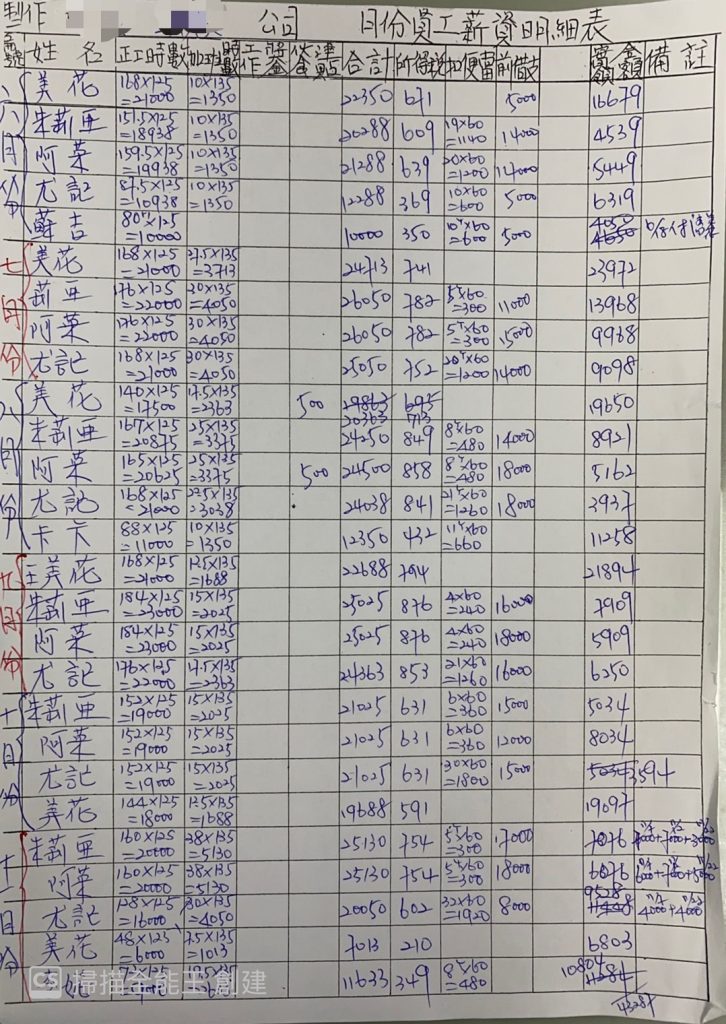 制作 公司 月份員工薪資明細表
編號 姓名 正工時數 加班時數 工作獎金 伙食津貼 合計 所得稅 扣便當 前借支 實領金額 備註
六月份
美花 168×125=21000 10×135=1350 22350 671 5000 16679
朱莉亜 151.5×125=18938 10×135=1350 20288 609 19×60=1140 14000 4539
阿菜 159.5×125=19938 10×135=1350 21288 639 20×60=1200 14000 5449
尤記 87.5×125=10938 10×135=1350 12288 369 10×60=600 5000 6319
蘇吉 80×125=10000 10000 350 10×60=600 5000 4050
七月份
美花 168×125=21000 27.5×135=3713 24713 741 23972
莉亜 176×125=22000 30×135=4050 26050 782 5×60=300 11000 13968
阿菜 176×125=22000 30×135=4050 26050 782 5×60=300 15000 9968
尤記 168×125=21000 30×135=4050 25050 752 20×60=1200 14000 9098
八月份
美花 140×125=17500 17.5×135=2363 500 20363 713 19650
朱莉亜 167×125=20875 25×135=3375 24250 849 8×60=480 14000 8921
阿菜 165×125=20625 25×135=3375 500 24500 858 8×60=480 18000 5162
尤記 168×125=21000 22.5×135=3038 24038 841 21×60=1260 18000 3937
卡卡 88×125=11000 10×135=1350 12350 432 11×60=660 11258
九月份
王美花 168×125=21000 12.5×135=1688 22688 794 21894
朱莉亜 184×125=23000 15×135=2025 25025 876 4×60=240 16000 7909
阿菜 184×125=23000 15×135=2025 25025 876 4×60=240 18000 5909
尤記 176×125=22000 17.5×135=2363 24363 853 21×60=1260 16000 6250
十月份
朱莉亜 152×125=19000 15×135=2025 21025 631 6×60=360 15000 5034
阿菜 152×125=19000 15×135=2025 21025 631 6×60=360 12000 8034
尤記 152×125=19000 15×135=2025 21025 631 30×60=1800 15000 3594
美花 144×125=18000 12.5×135=1688 19688 591 19097
十一月份
朱莉亜 160×125=20000 38×135=5130 25130 754 5×60=300 17000 7076
阿菜 160×125=20000 38×135=5130 25130 754 5×60=300 18000 6076
尤記 128×125=16000 30×135=4050 20050 602 32×60=1920 8000 9528 4000+4000
美花 48×125=6000 7.5×135=1013 7013 210 6803
11633 349 8×60=480 10804
43287
CS 掃描全能王 創建